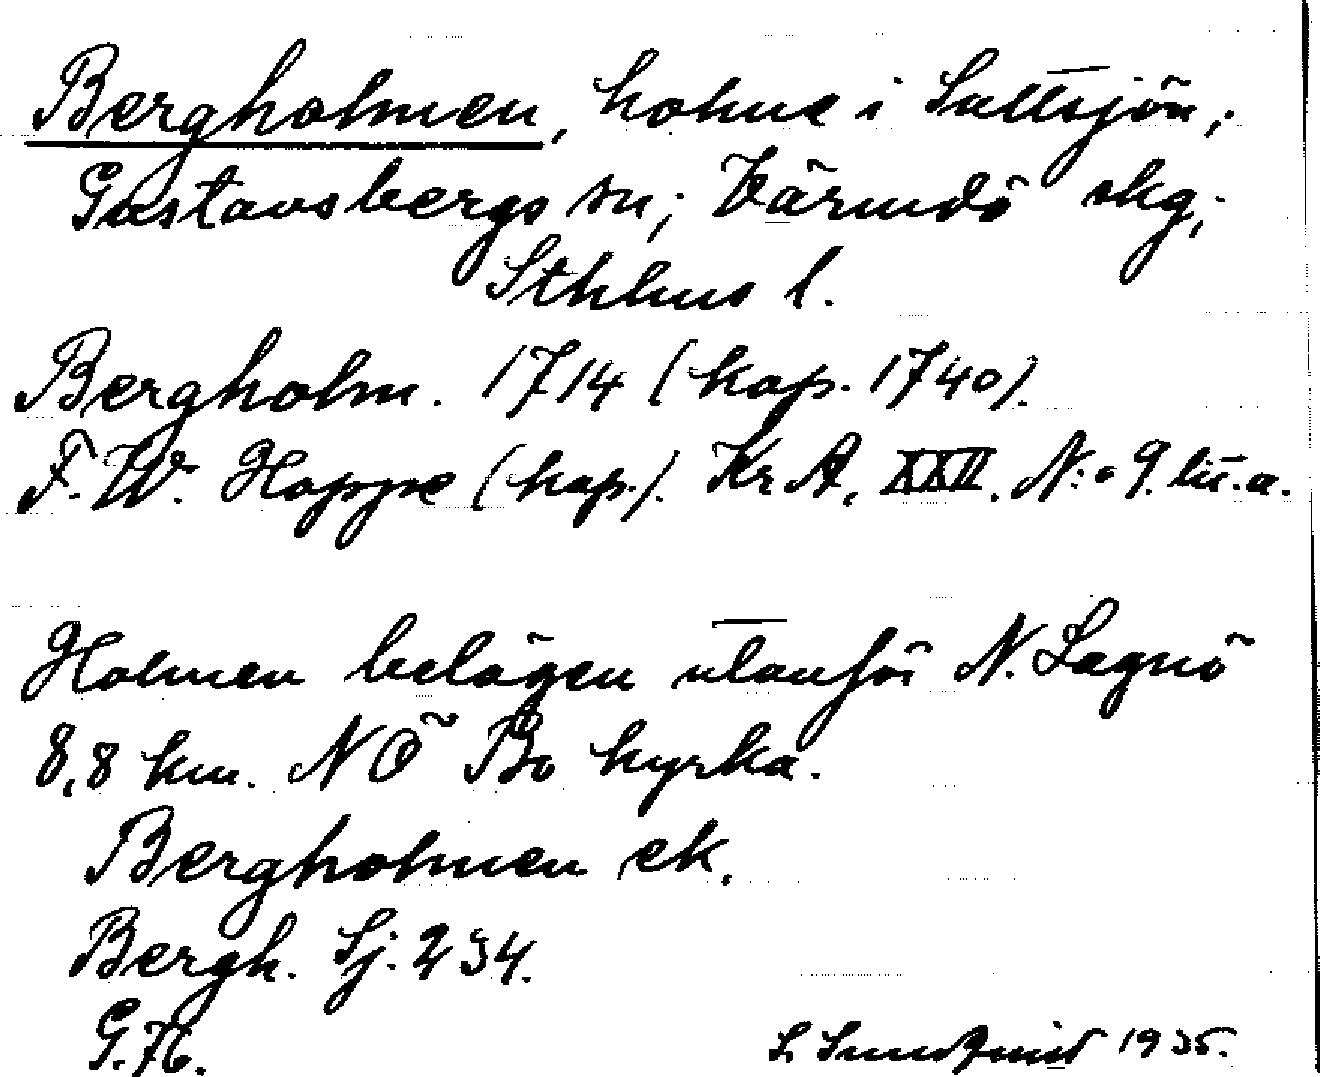 Bergholmen, holme i Saltsjön,
Gustavsbergs sn; Värmdö skg;
Sthlms l.
Bergholm. 1714 (kop. 1740).
F.W. Hoppe (kop.). Kr A, XXII. N:o 9. lit. a.
Holmen belägen utanför N. Lagnö
8,8 km. NÖ Bo kyrka.
Bergholmen ek.
Bergh. Sj. 234.
G.76.
S. Sundquist 1935.